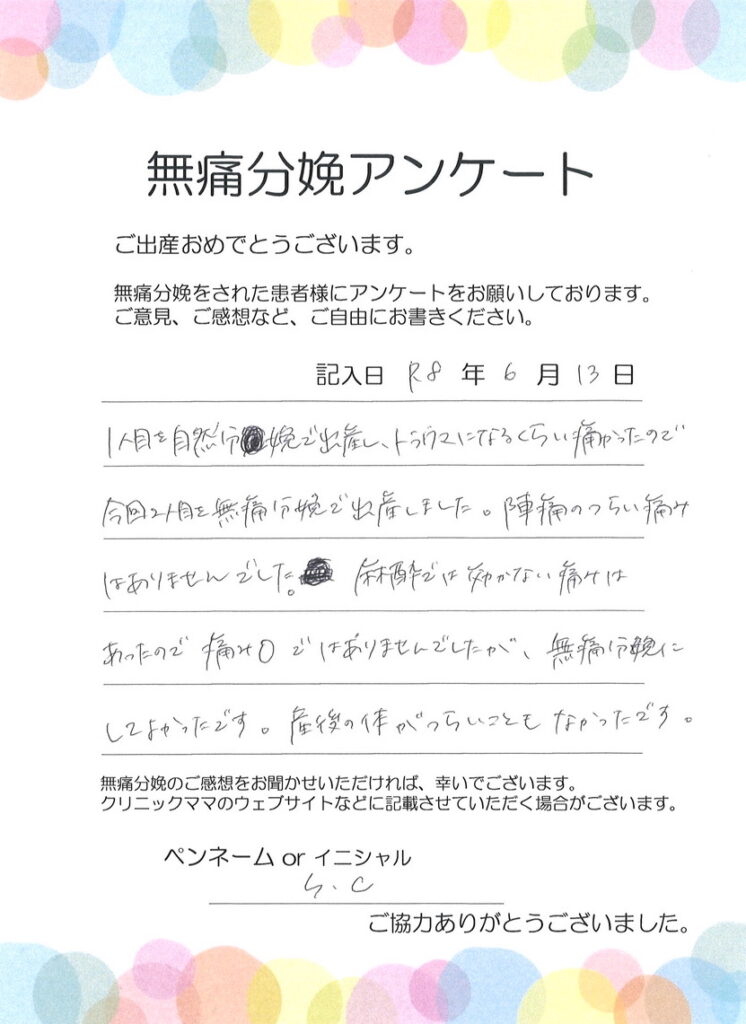 無痛分娩アンケート
ご出産おめでとうございます。
無痛分娩をされた患者様にアンケートをお願いしております。
ご意見、ご感想など、ご自由にお書きください。
記入日 R8 年 6 月 13 日
1人目を自然分娩で出産し、トラウマになるくらい痛かったので
今回2人目を無痛分娩で出産しました。陣痛のつらい痛み
はありませんでした。麻酔では効かない痛みは
あったので痛み0ではありませんでしたが、無痛分娩に
してよかったです。産後の体がつらいこともなかったです。
無痛分娩のご感想をお聞かせいただければ、幸いでございます。
クリニックママのウェブサイトなどに記載させていただく場合がございます。
ペンネーム or イニシャル
C
ご協力ありがとうございました。